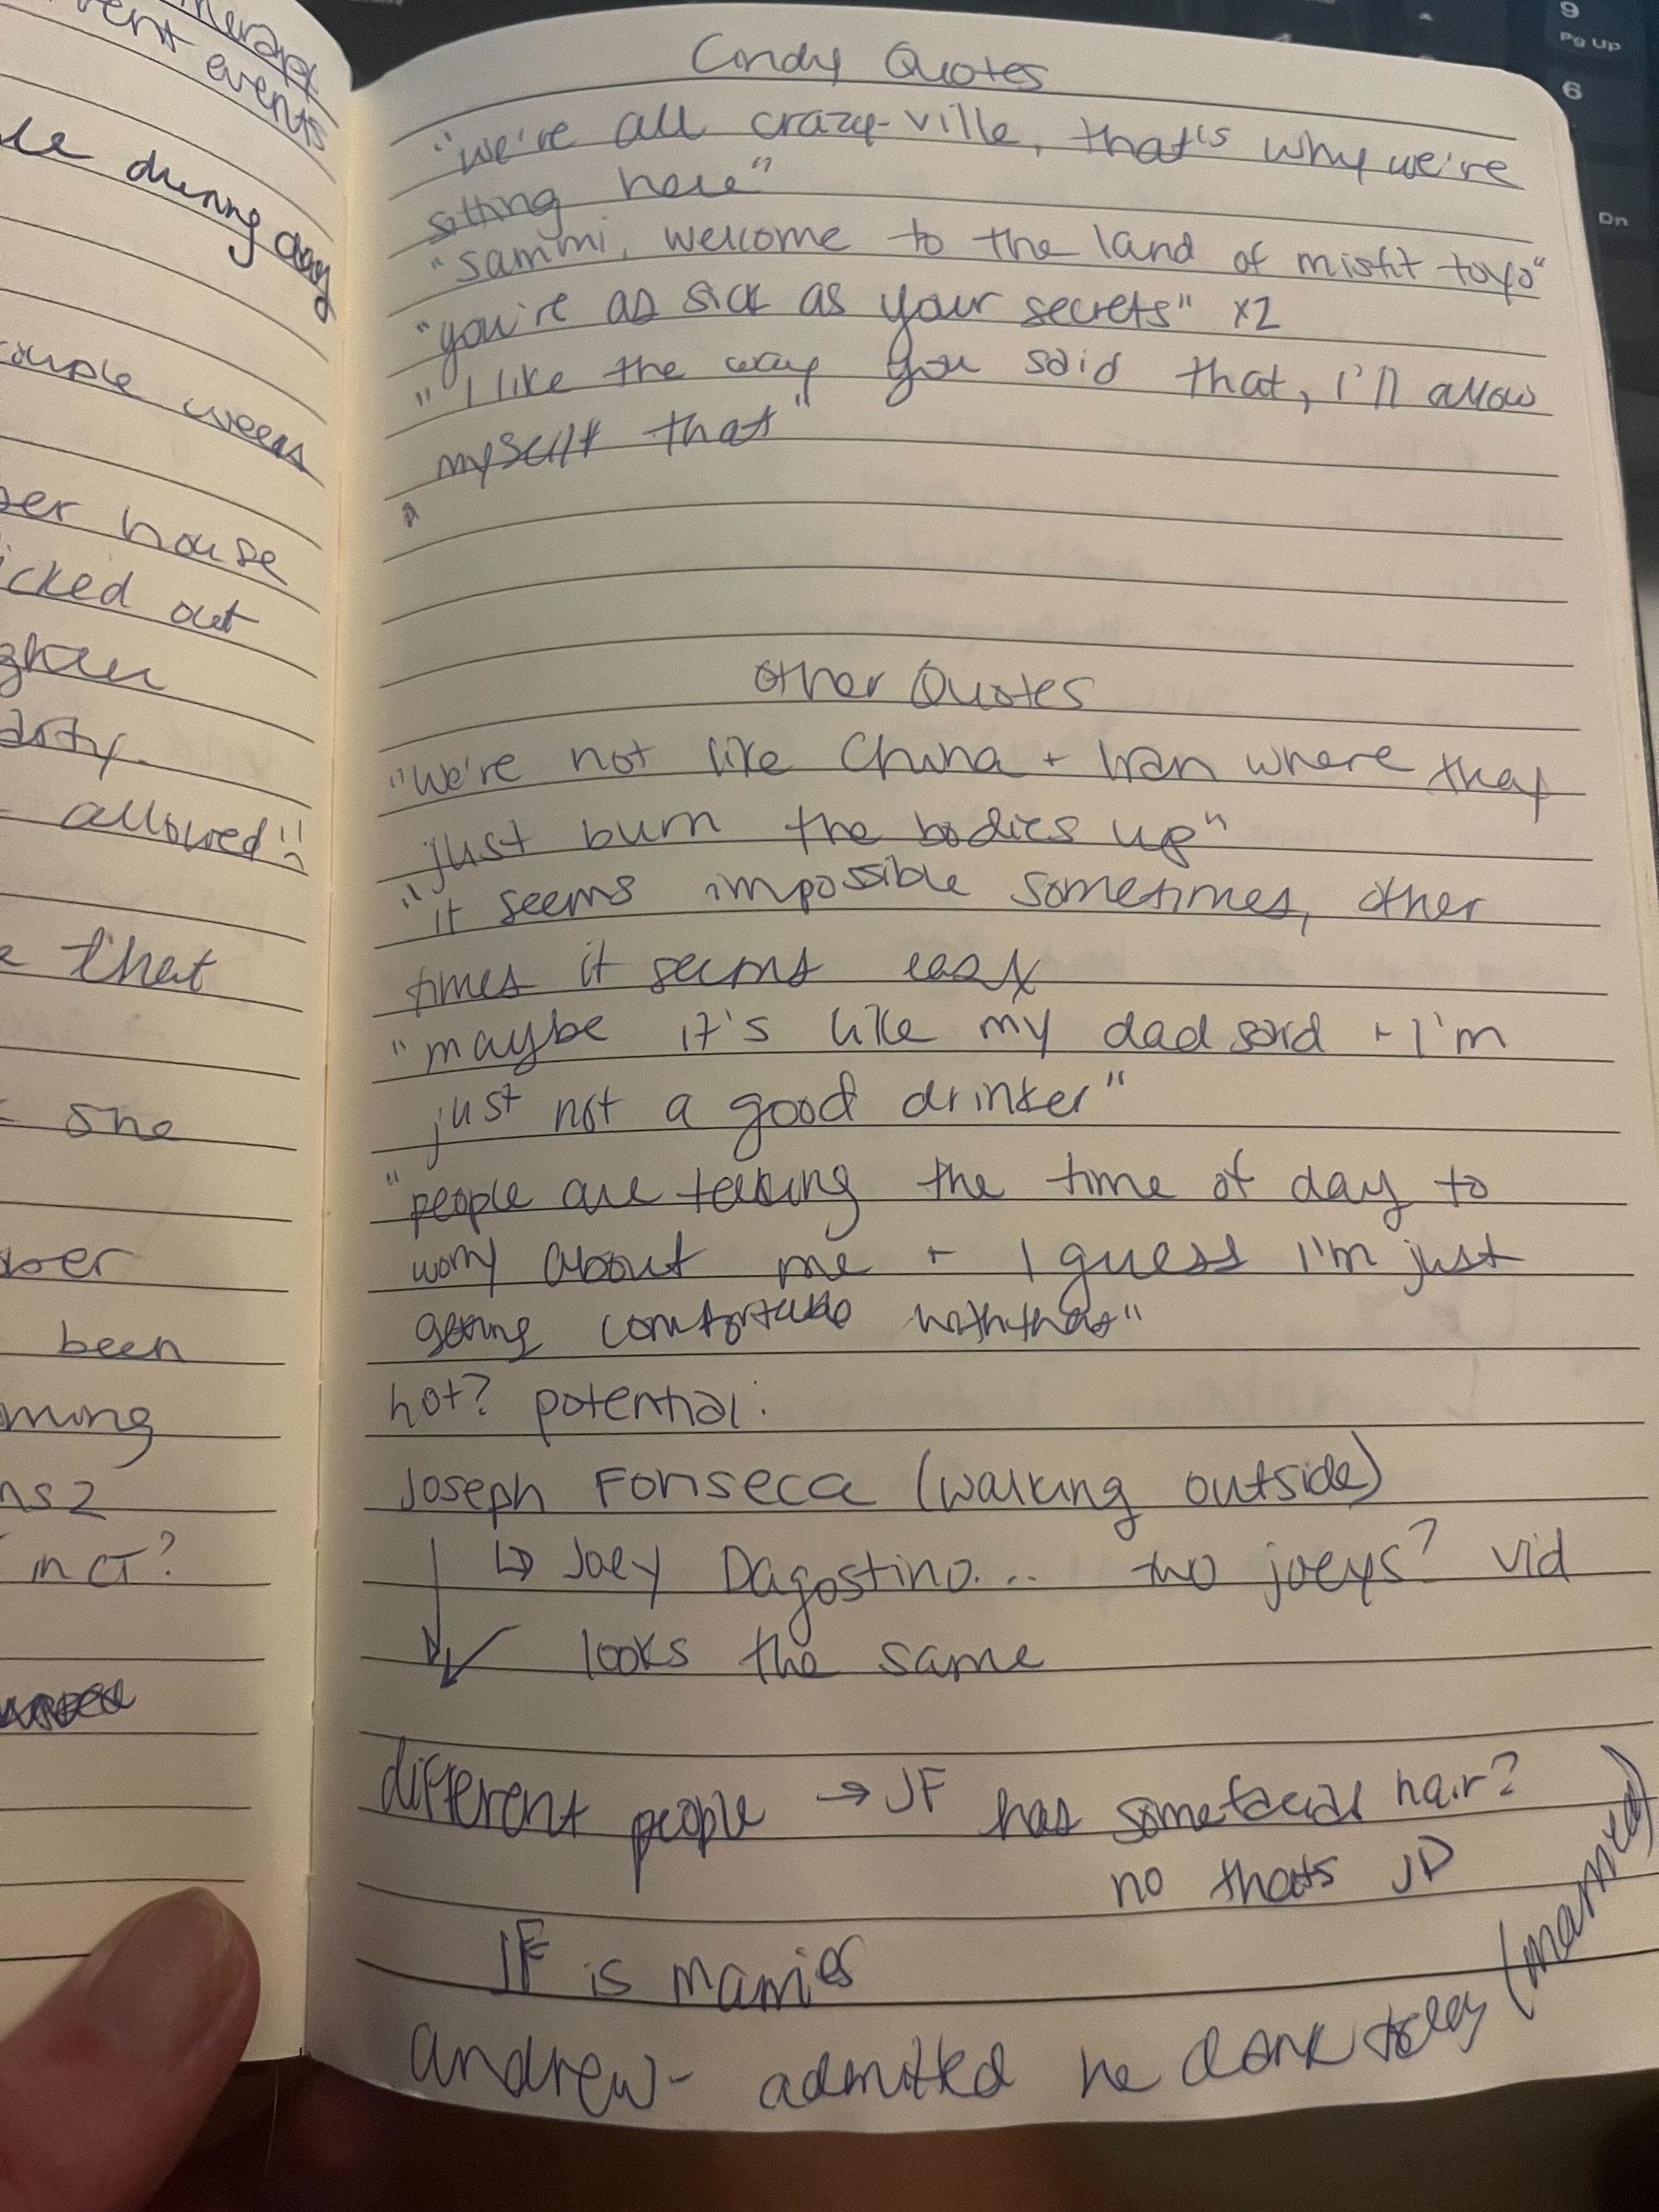 therapy
rent events
during day
couple weeks
per house
icked out
arty.
allowed!!
that
she
been
ming
ns 2
in CT?
Cindy Quotes
"we're all crazy-ville, that's why we're
sitting here"
"sammi, welcome to the land of misfit toys"
"you're as sick as your secrets" x2
"I like the way you said that, I'll allow
myself that"
"
Other Quotes
"We're not like China + Iran where they
just burn the bodies up"
"it seems impossible sometimes, other
times it seems easy
"maybe it's like my dad said + I'm
just not a good drinker"
"people are taking the time of day to
worry about me + I guess I'm just
getting comfortable with that"
hot? potential:
Joseph Fonseca (walking outside)
↳ Joey Dagostino... two joeys? vid
looks the same
different people → JF has some facial hair?
no thats JD
JF is married
andrew - admitted he drank today (married)
9
Pg Up
6
Dn